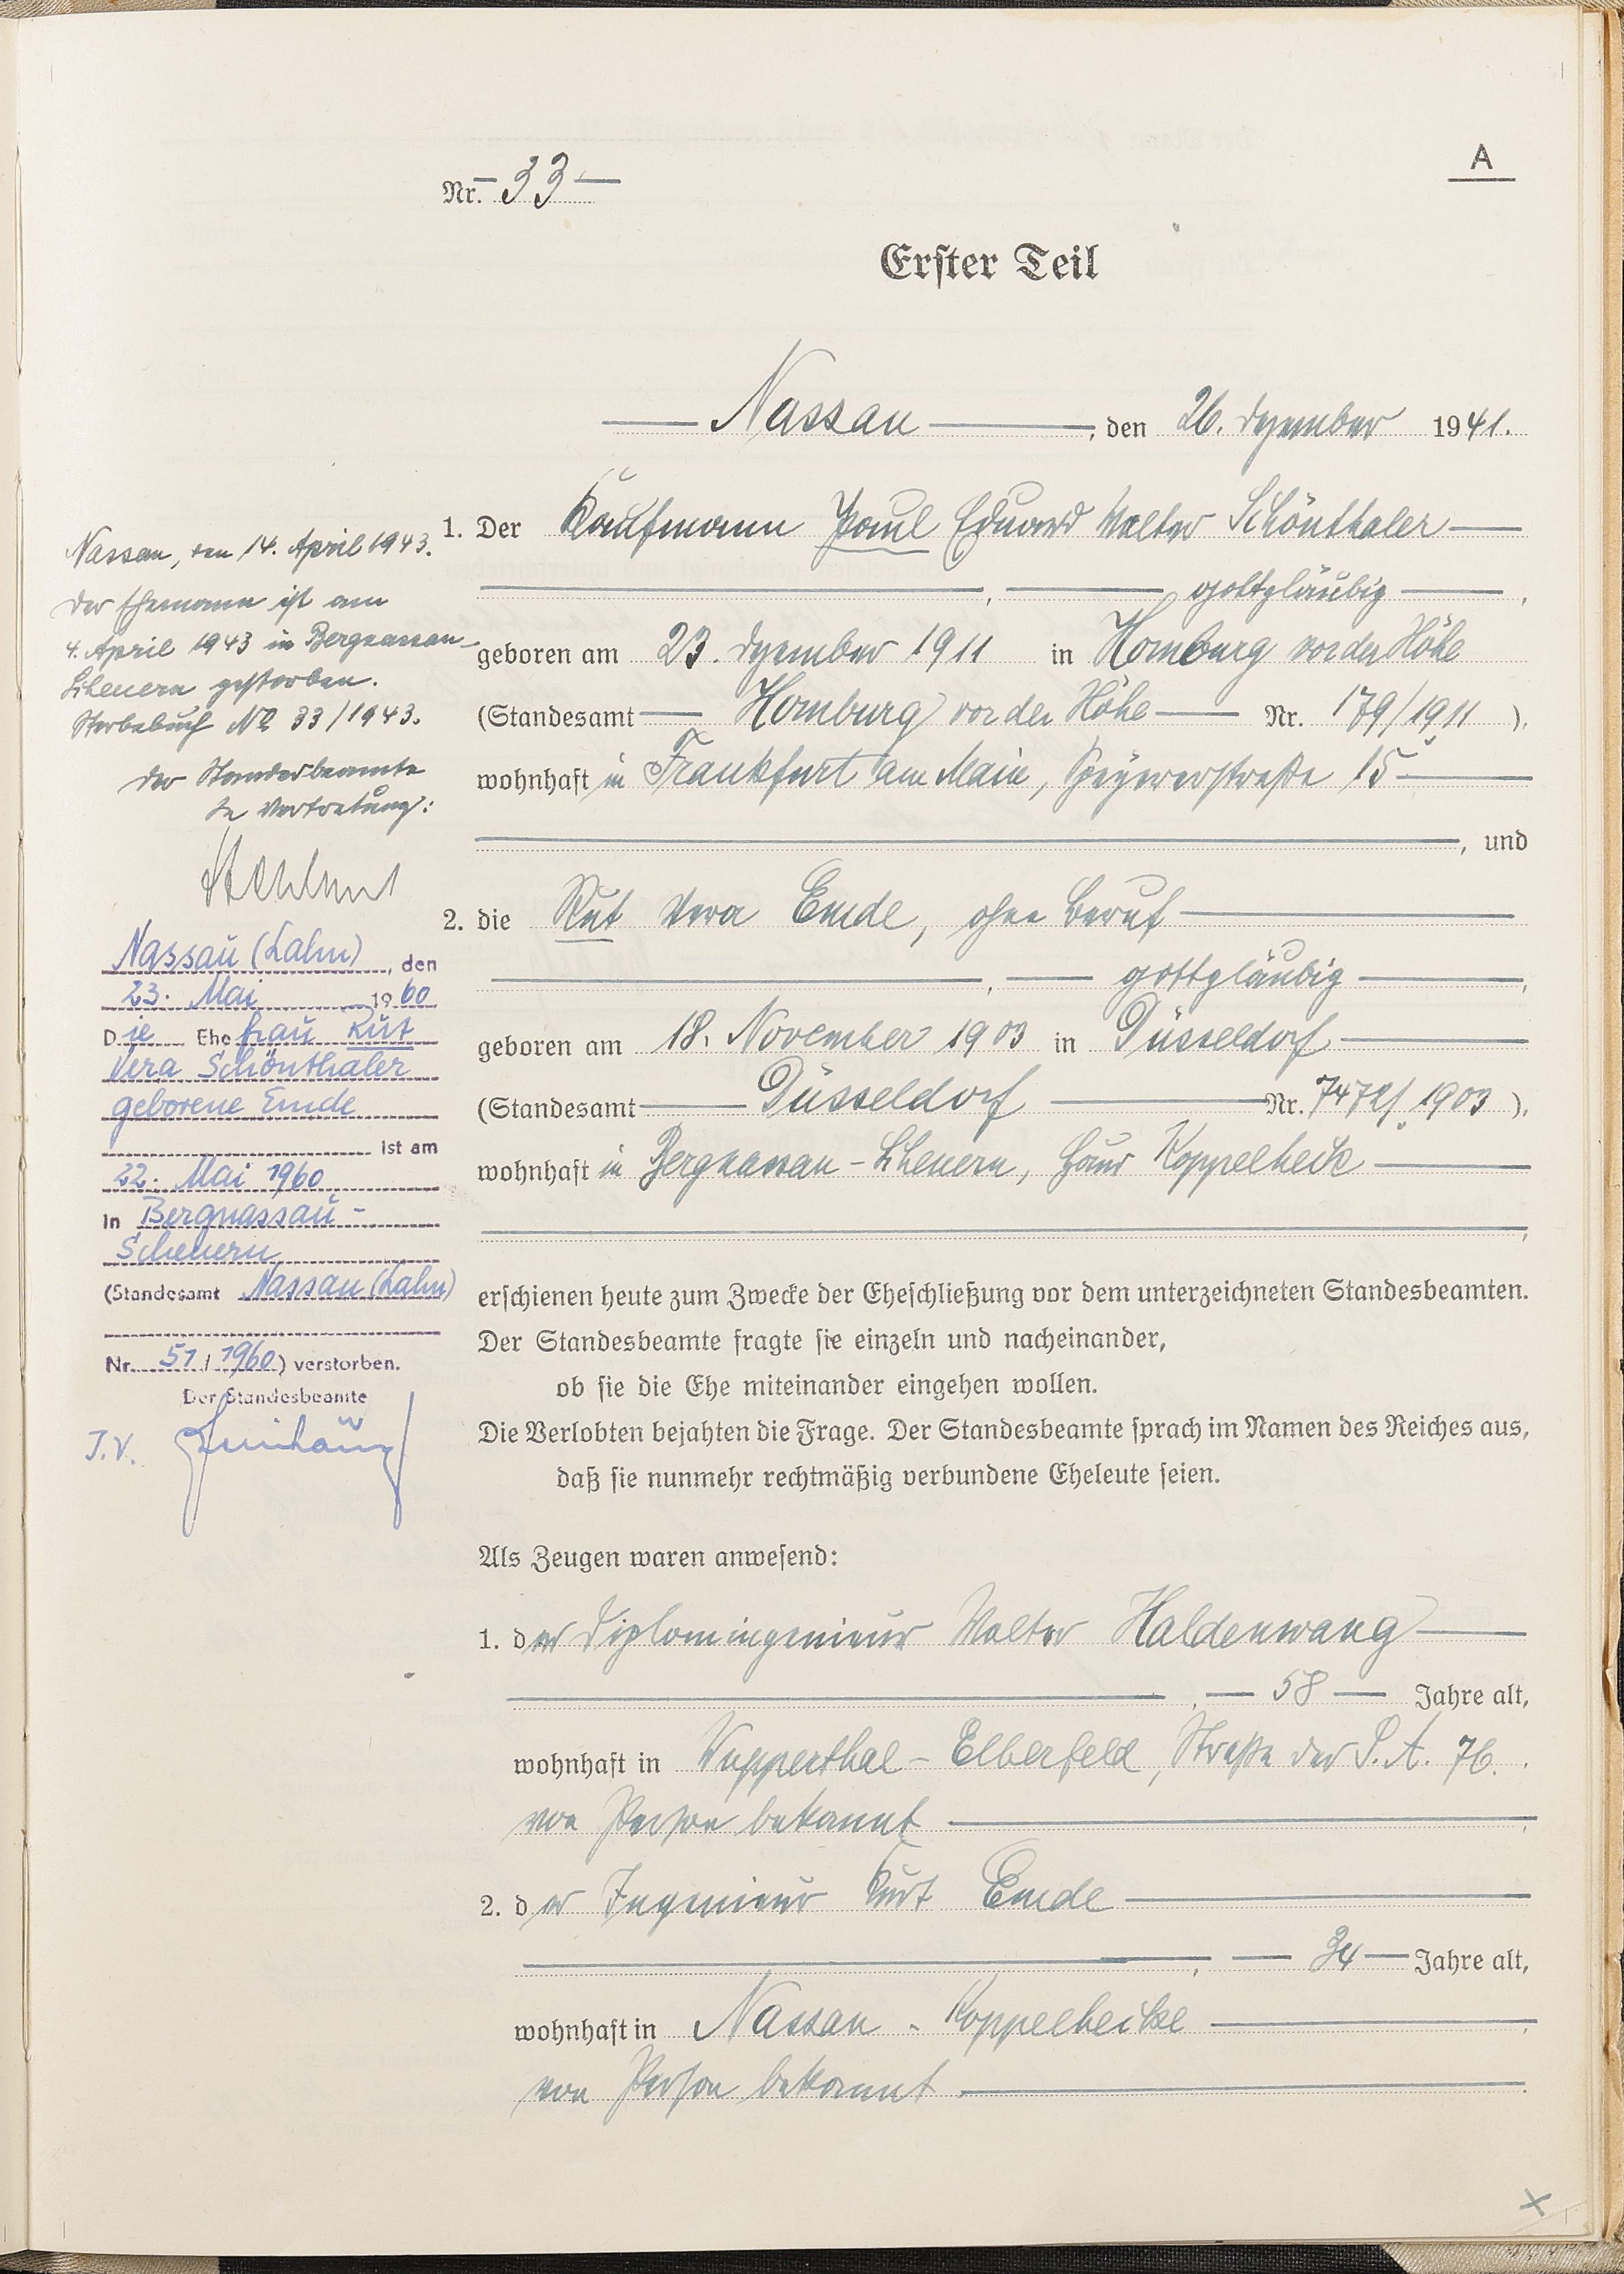 A
Nr. 33
Erster Teil
Nassau, den 26. Dezember 1941.
1. Der Kaufmann Paul Eduard Walter Schönthaler
, gottgläubig ,
geboren am 23. Dezember 1911 in Homburg vor der Höhe
(Standesamt Homburg vor der Höhe Nr. 179/1911 ).
wohnhaft in Frankfurt am Main, Speyererstraße 15
, und
2. die Rut Vera Emde, ohne Beruf
, gottgläubig ,
geboren am 18. November 1903 in Düsseldorf
(Standesamt Düsseldorf Nr. 7472/1903 ),
wohnhaft in Bergnassau-Scheuern, Haus Koppelheck
,
erschienen heute zum Zwecke der Eheschließung vor dem unterzeichneten Standesbeamten.
Der Standesbeamte fragte sie einzeln und nacheinander,
ob sie die Ehe miteinander eingehen wollen.
Die Verlobten bejahten die Frage. Der Standesbeamte sprach im Namen des Reiches aus,
daß sie nunmehr rechtmäßig verbundene Eheleute seien.
Als Zeugen waren anwesend:
1. der Diplomingenieur Walter Haldenwang
, 58 Jahre alt,
wohnhaft in Wupperthal-Elberfeld, Straße der S.A. 76.
von Person bekannt ,
2. der Ingenieur Kurt Emde
, 34 Jahre alt,
wohnhaft in Nassau - Koppelheicke
von Person bekannt
Nassau, den 14. April 1943.
Der Ehemann ist am
4. April 1943 in Bergnassau-
Scheuern gestorben.
Sterbebuch No 33/1943.
Der Standesbeamte
In Vertretung:
Nassau (Lahn), den
23. Mai 1960
Die Ehefrau Rut
Vera Schönthaler
geborene Emde
ist am
22. Mai 1960
in Bergnassau-
Scheuern
(Standesamt Nassau (Lahn)
Nr. 51/1960) verstorben.
Der Standesbeamte
J.V.